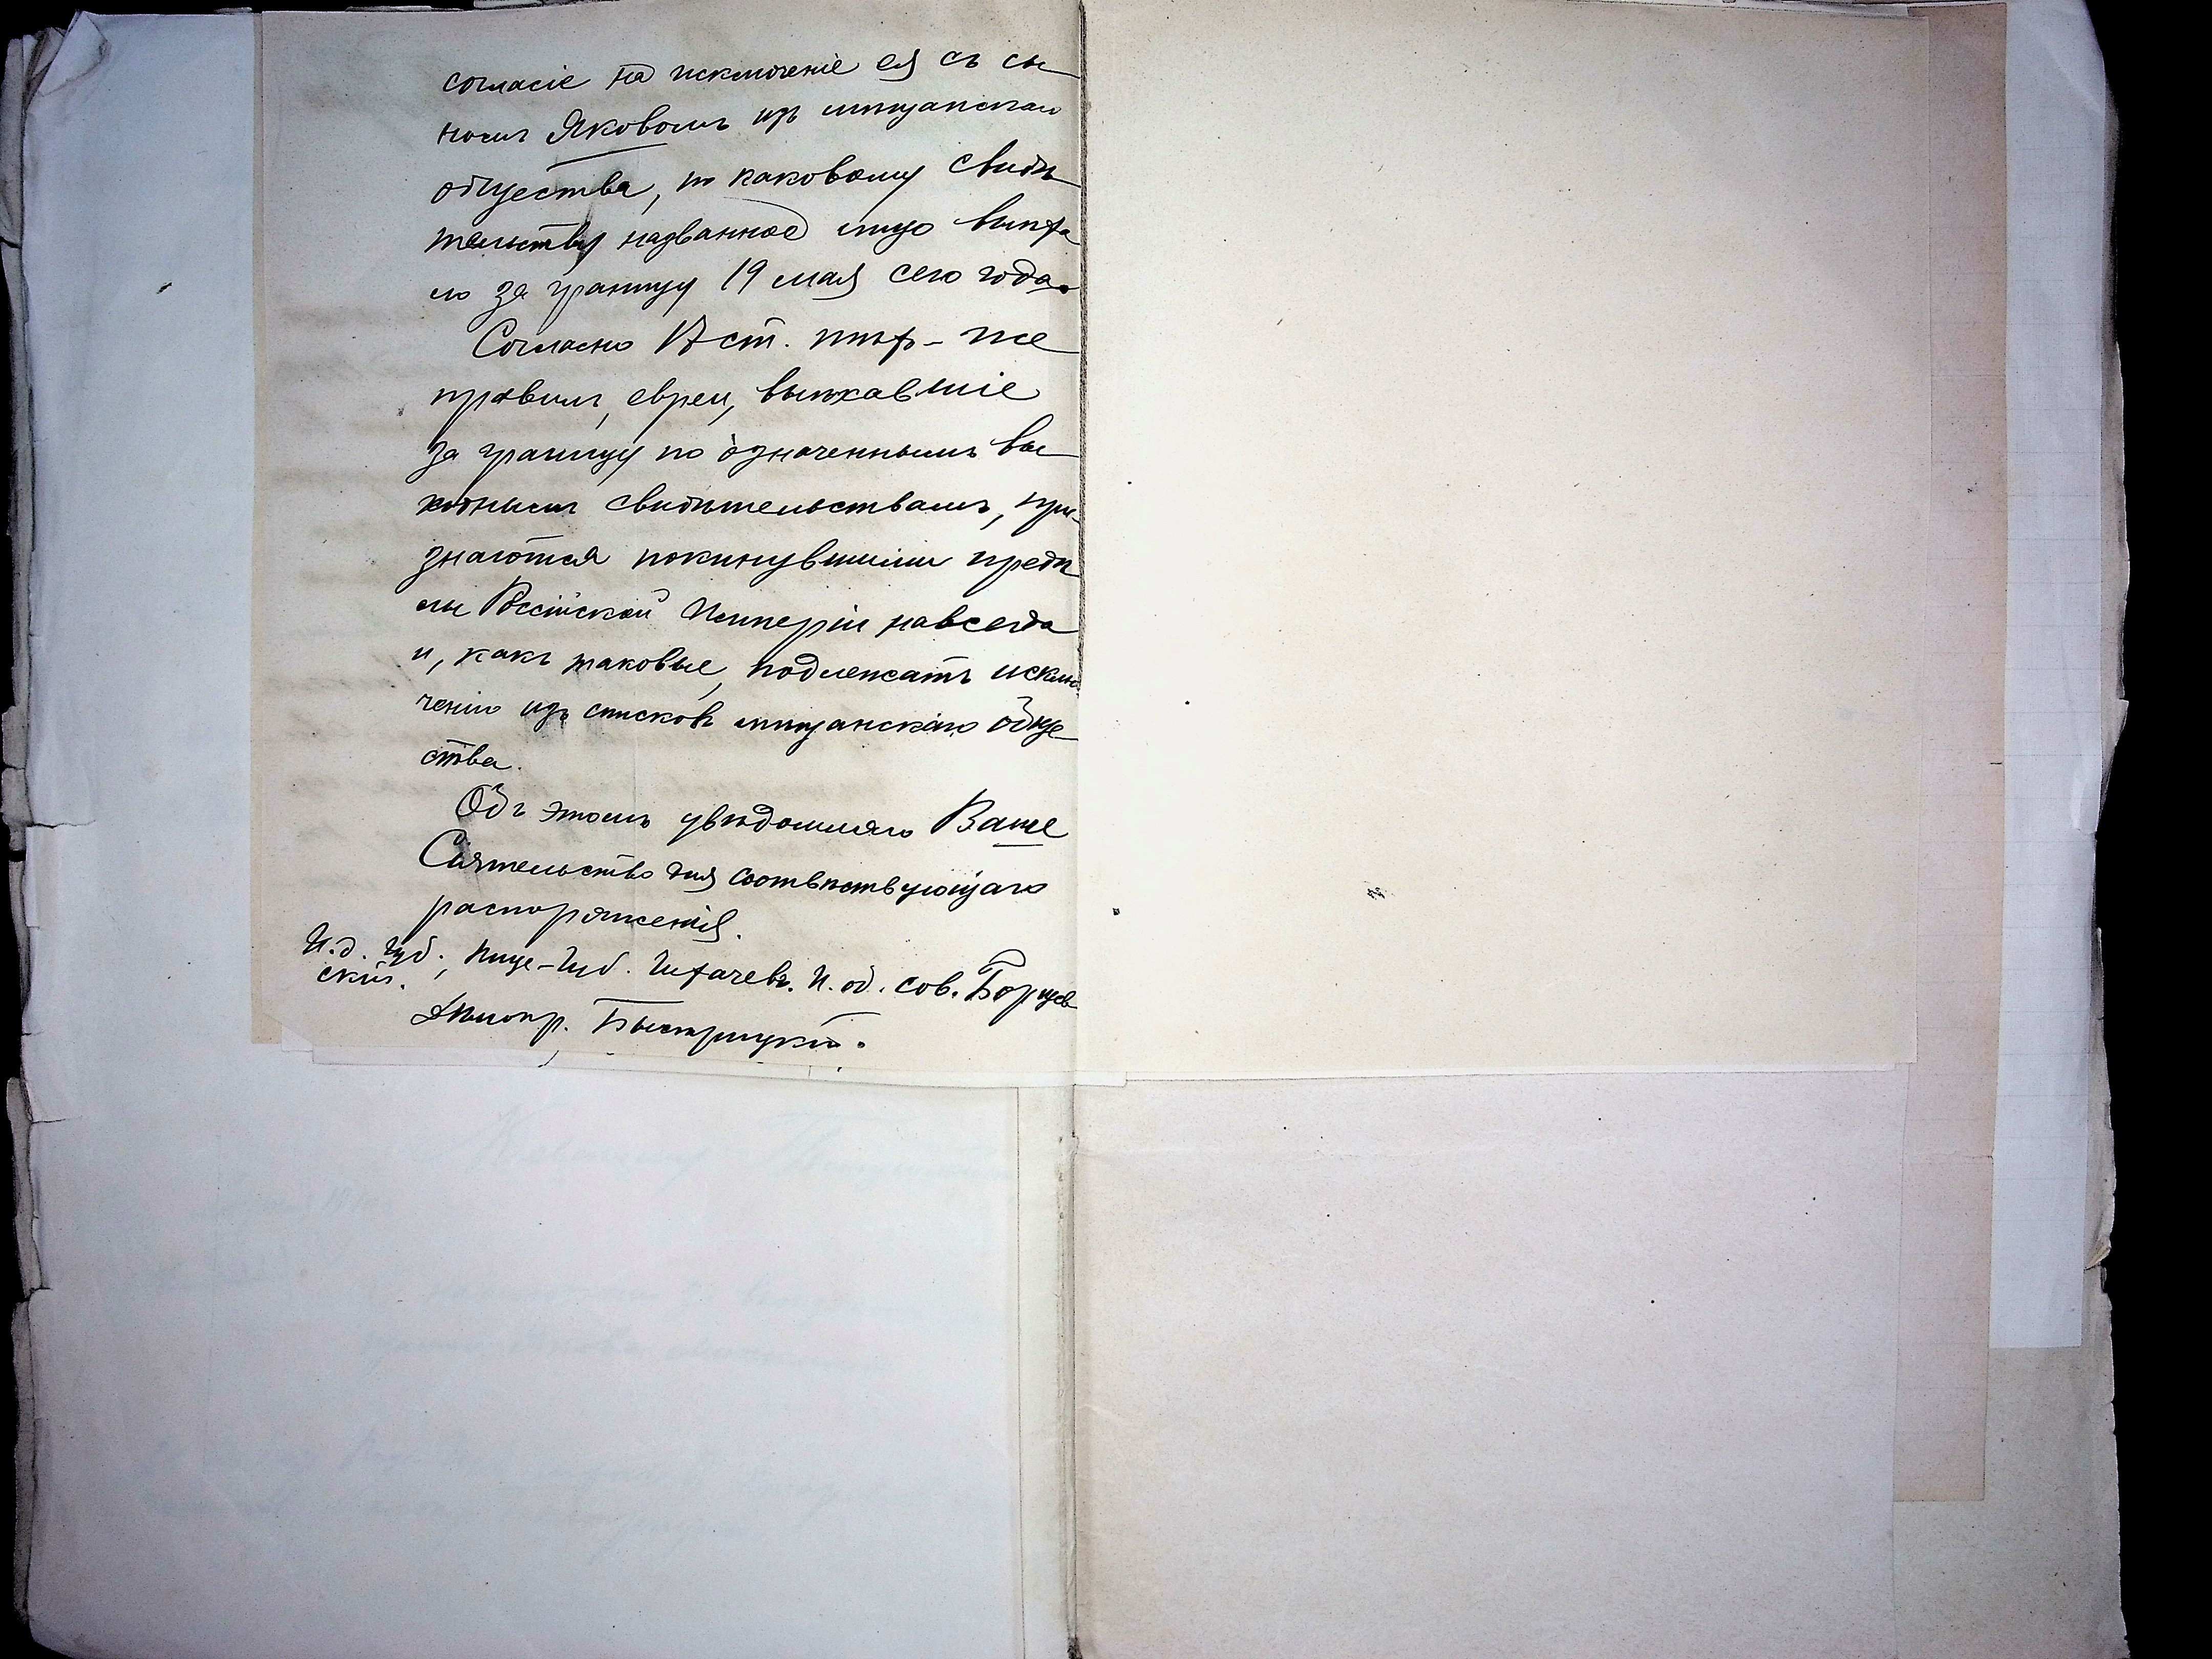 согласіе на исключеніе ея съ сы
номъ Яковомъ изъ мѣщанскаго
общества, по каковому свидѣ
тельству названное лицо выѣха
ло за границу 19 мая сего года.
Согласно ст. тѣхъ-же
правилъ, евреи, выѣхавшіе
за границу по означеннымъ вы
ходнымъ свидѣтельствамъ, при-
знаются покинувшими предѣ
лы Россійской Имперіи навсегда
и, какъ таковые, подлежатъ исклю
ченію изъ списковъ мѣщанскаго обще
ства.
Объ этомъ увѣдомляю Ваше
Сіятельство для соотвѣтствующаго
распоряженія.
И.д. Губ., Вице-Губ. И. об. сов. Борщев
скій.
Дѣлопр. Быстрицкій.